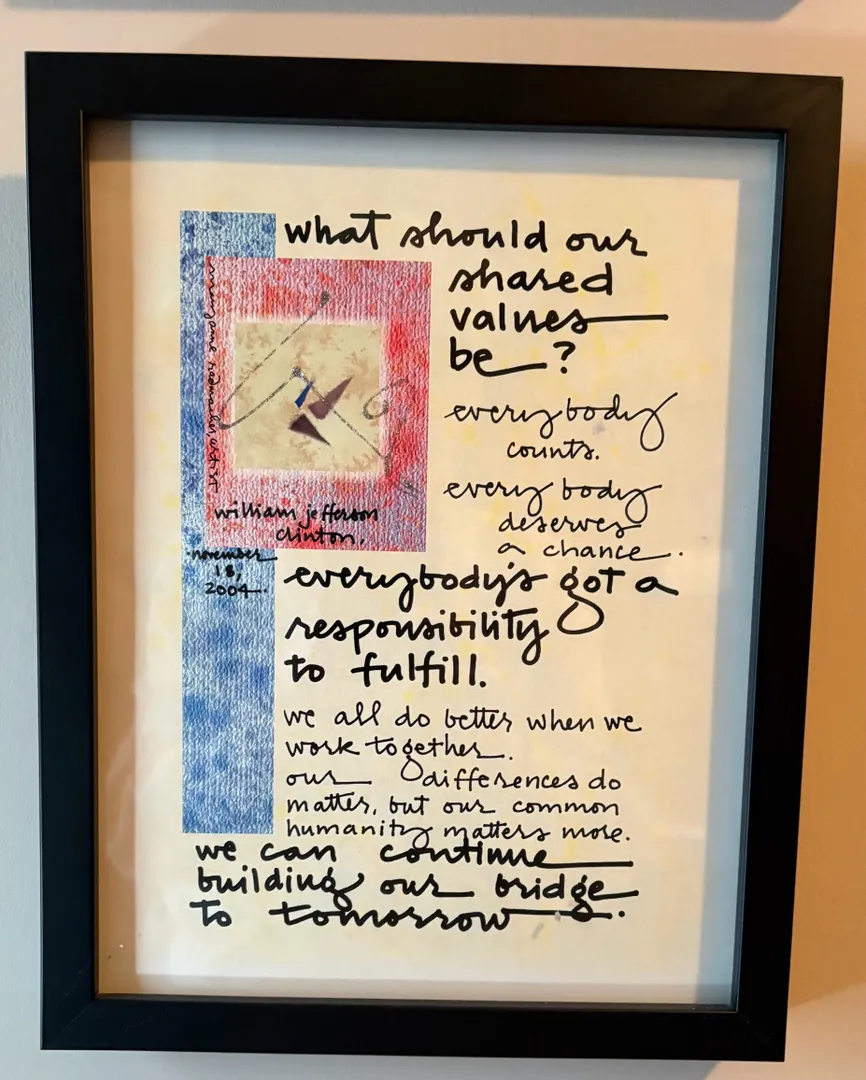 what should our
shared
values
be ?
everybody
counts.
every body
deserves
a chance.
william jefferson
clinton.
november
18,
2004.
everybody's got a
responsibility
to fulfill.
we all do better when we
work together.
our differences do
matter, but our common
humanity matters more.
we can continue
building our bridge
to tomorrow.